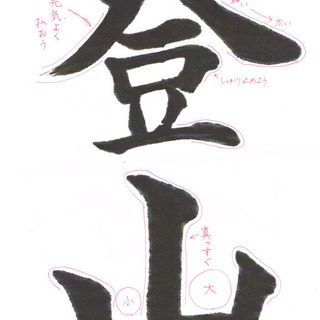 登山
元気よく
払おう
細い
太い
しっかり止めよう
真っすぐ
大
小